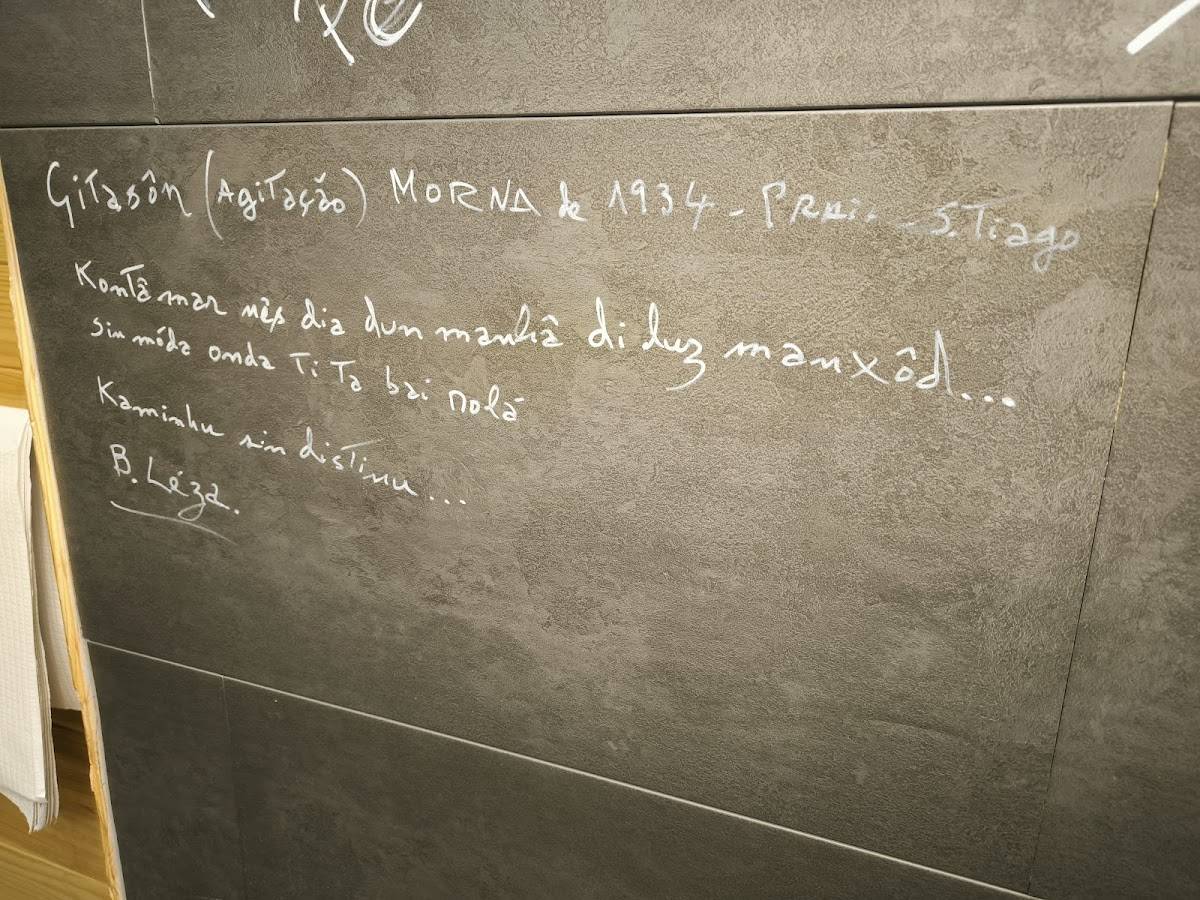 Gitasôn (Agitação) MORNA de 1934 - Praia - S.Tiago
Kontâ mar nês dia dun manhâ di luz manxôd...
sin móda onda ti ta bai nolá
Kaminhu sin distinu...
B. Léza.